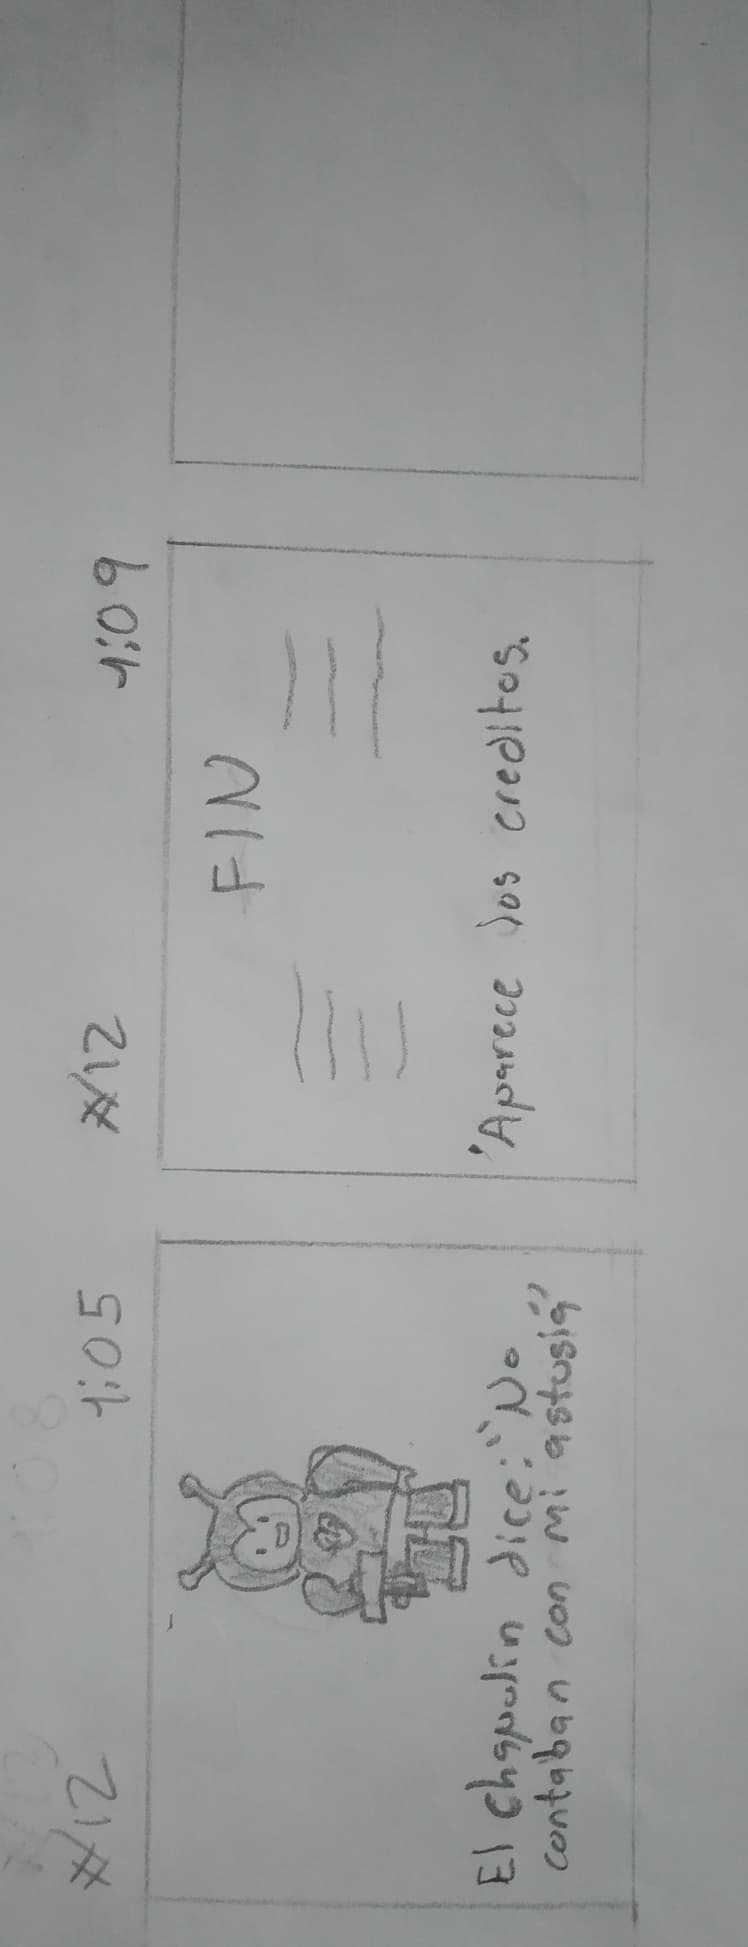 #12
1:05
El Chapulin dice: "No
contaban con mi astusia"
#12
1:09
FIN
'Aparece los creditos.